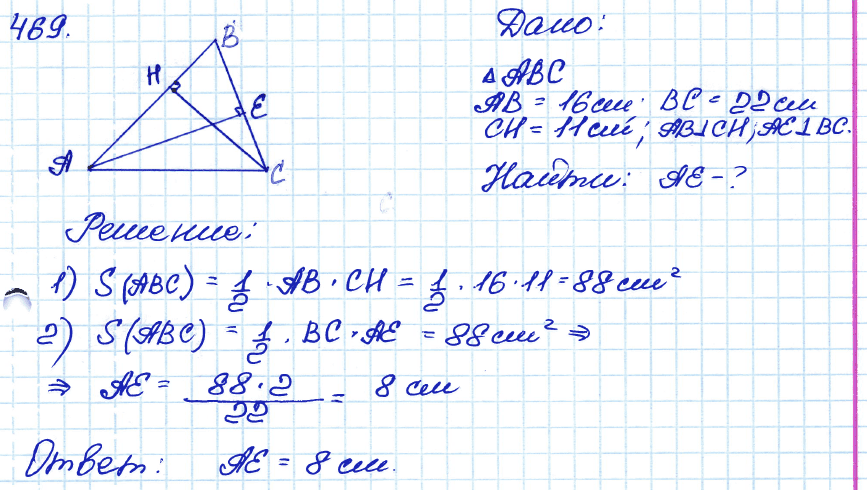 469.
Дано:
B
H
△ABC
E
AB = 16 см; BC = 22 см
CH = 11 см; AB⊥CH; AE⊥BC.
A
C
Найти: AE - ?
Решение:
1) S(ABC) = 1/2 · AB · CH = 1/2 · 16 · 11 = 88 см²
2) S(ABC) = 1/2 · BC · AE = 88 см² ⇒
⇒ AE = 88 · 2 / 22 = 8 см
Ответ: AE = 8 см.